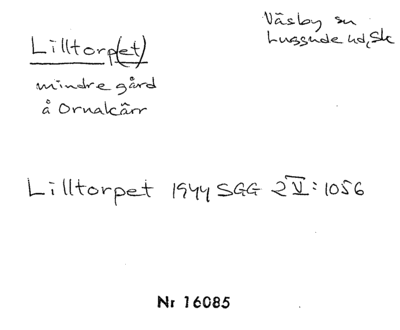 Väsby sn
Luggude hd, Sk
Lilltorp(et)
mindre gård
å Ornakärr
Lilltorpet 1944 SGG 2 V: 1056
Nr 16085